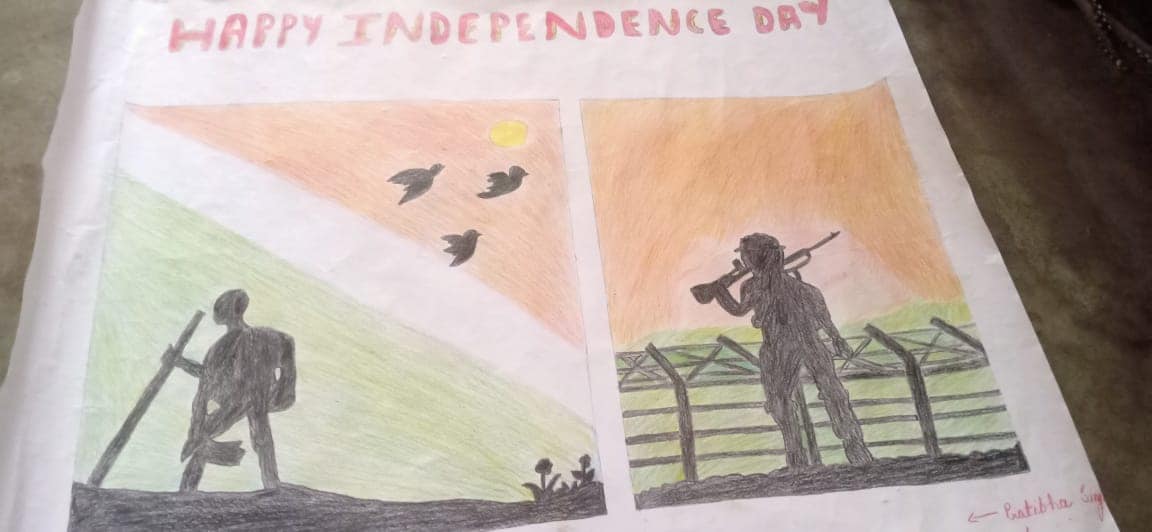 HAPPY INDEPENDENCE DAY
← Pratibha